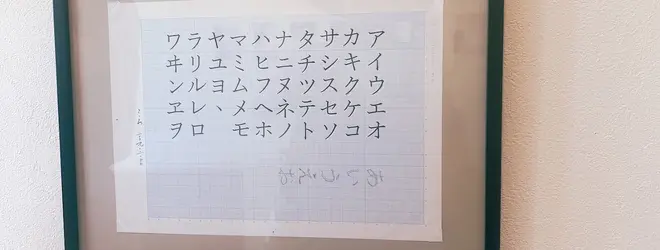 アイウエオ
カキクケコ
サシスセソ
タチツテト
ナニヌネノ
ハヒフヘホ
マミムメモ
ヤユヨ、
ラリルレロ
ワヰンヱヲ